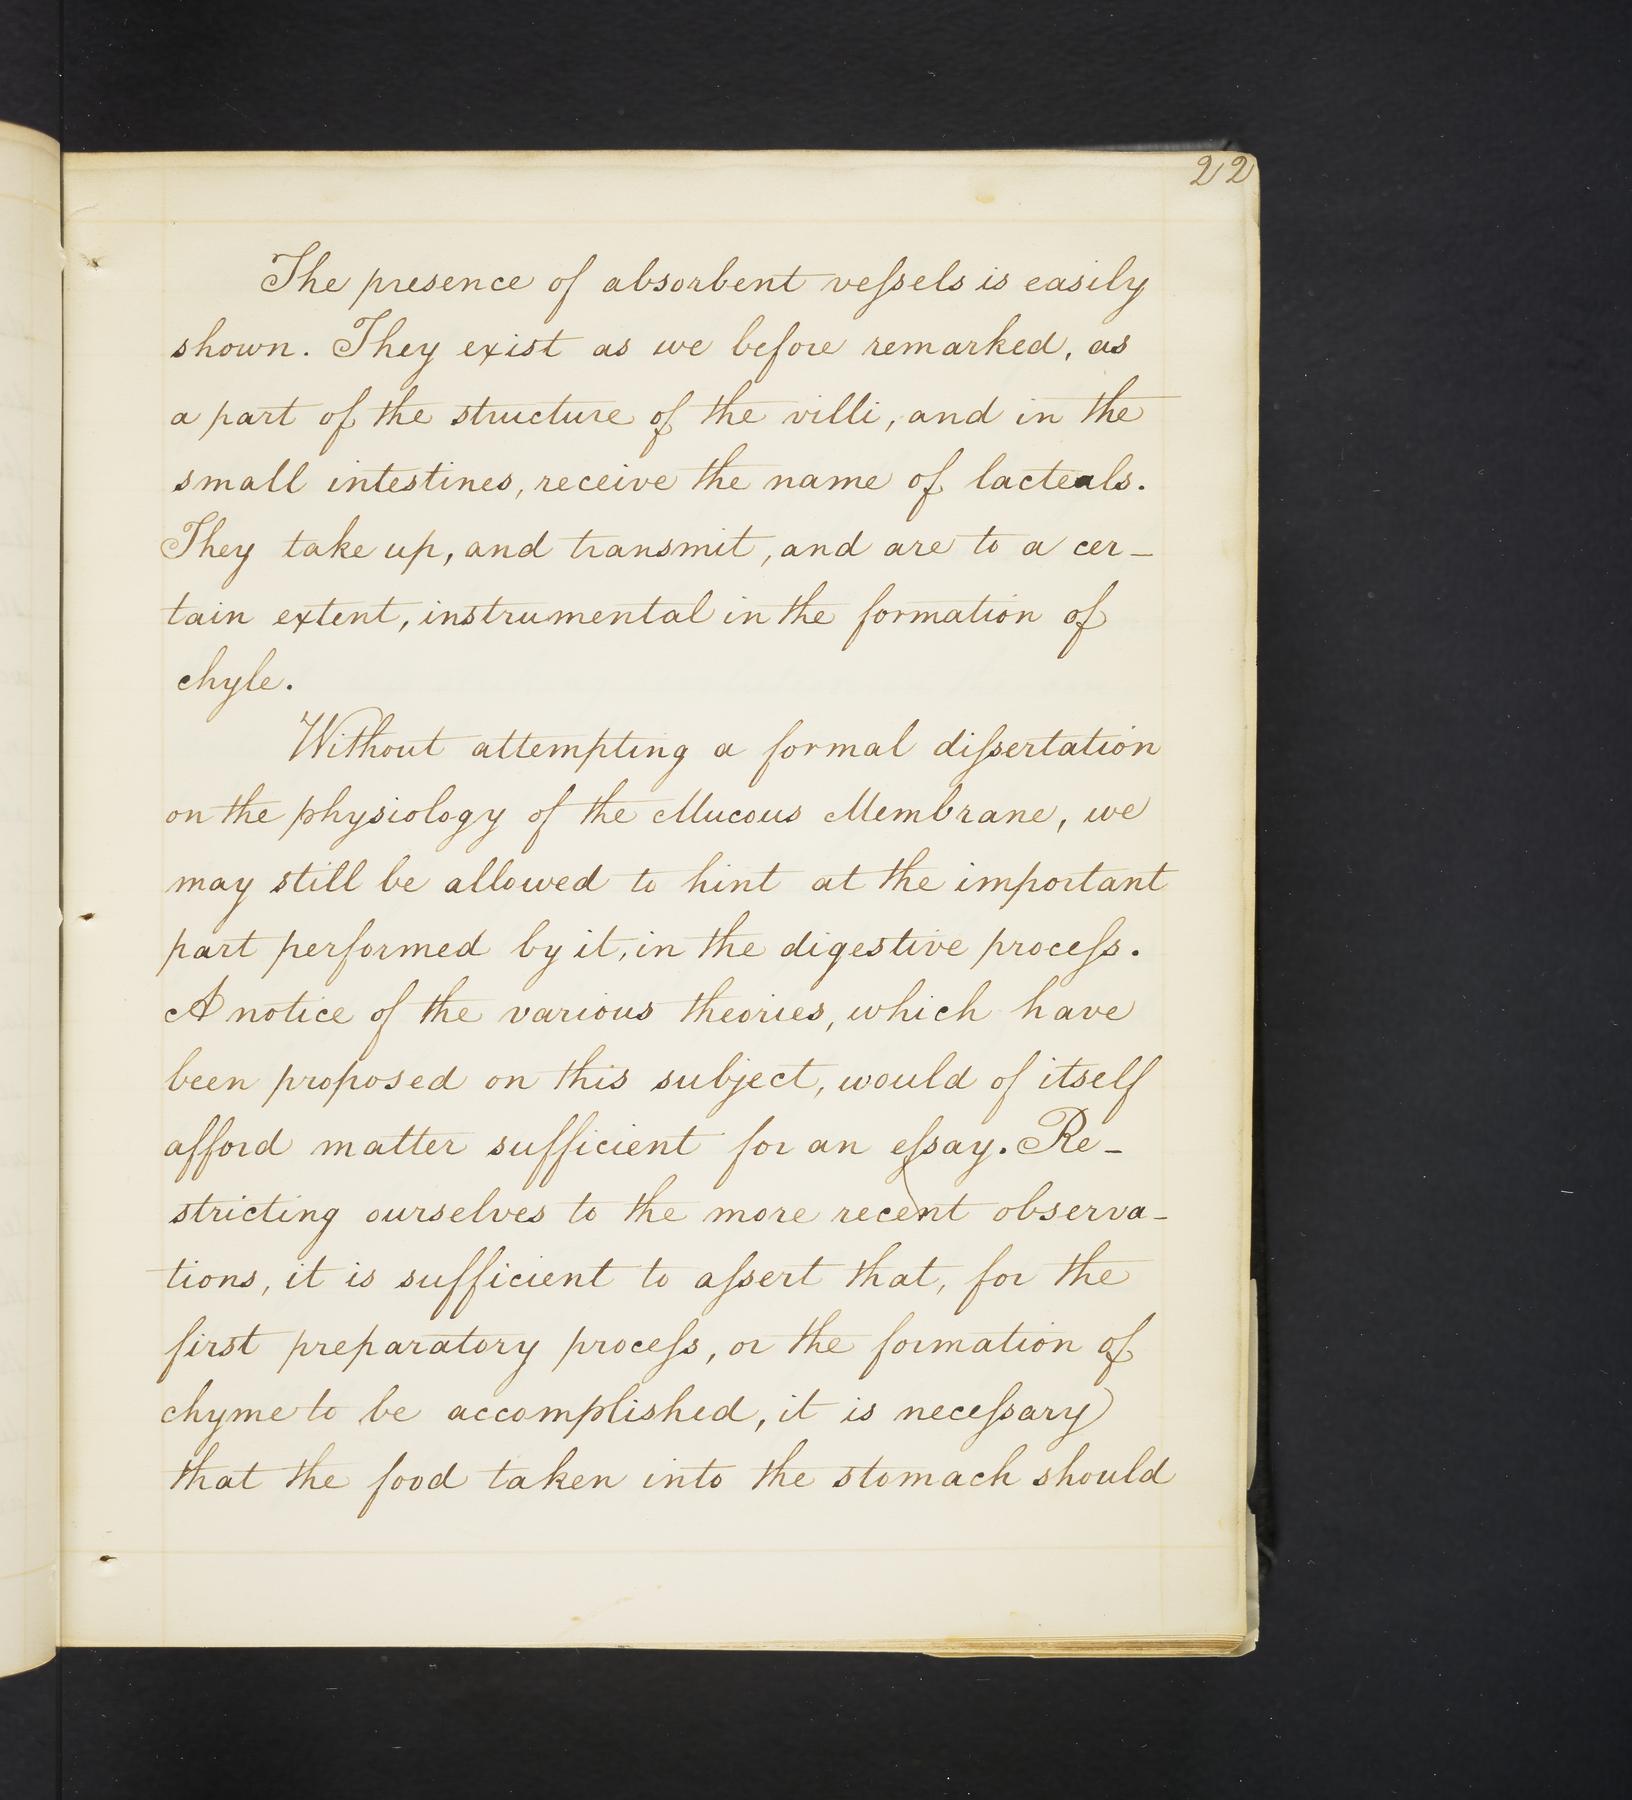 22
The presence of absorbent veſsels is easily
shown. They exist as we before remarked, as
a part of the structure of the villi, and in the
small intestines, receive the name of lacteals.
They take up, and transmit, and are to a cer-
tain extent, instrumental in the formation of
chyle.
Without attempting a formal diſsertation
on the physiology of the Mucous Membrane, we
may still be allowed to hint at the important
part performed by it, in the digestive proceſs.
A notice of the various theories, which have
been proposed on this subject, would of itself
afford matter sufficient for an eſsay. Re-
stricting ourselves to the more recent observa-
tions, it is sufficient to aſsert that, for the
first preparatory proceſs, or the formation of
chyme to be accomplished, it is neceſsary
that the food taken into the stomach should